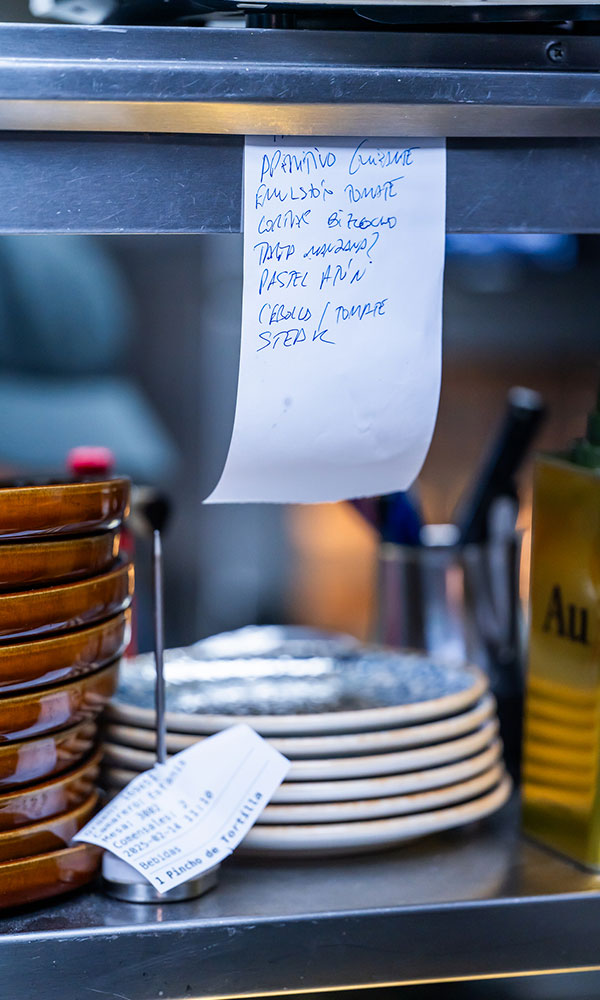 APERITIVO GUISANTE
EMULSIÓN TOMATE
CORTAR BIZCOCHO
TARTA MANZANA?
PASTEL ATÚN
CEBOLLA / TOMATE
STEAK
Au
Mesa: 3002
Comensales: 2
2025-02-14 11:10
Bebidas
1 Pincho de Tortilla